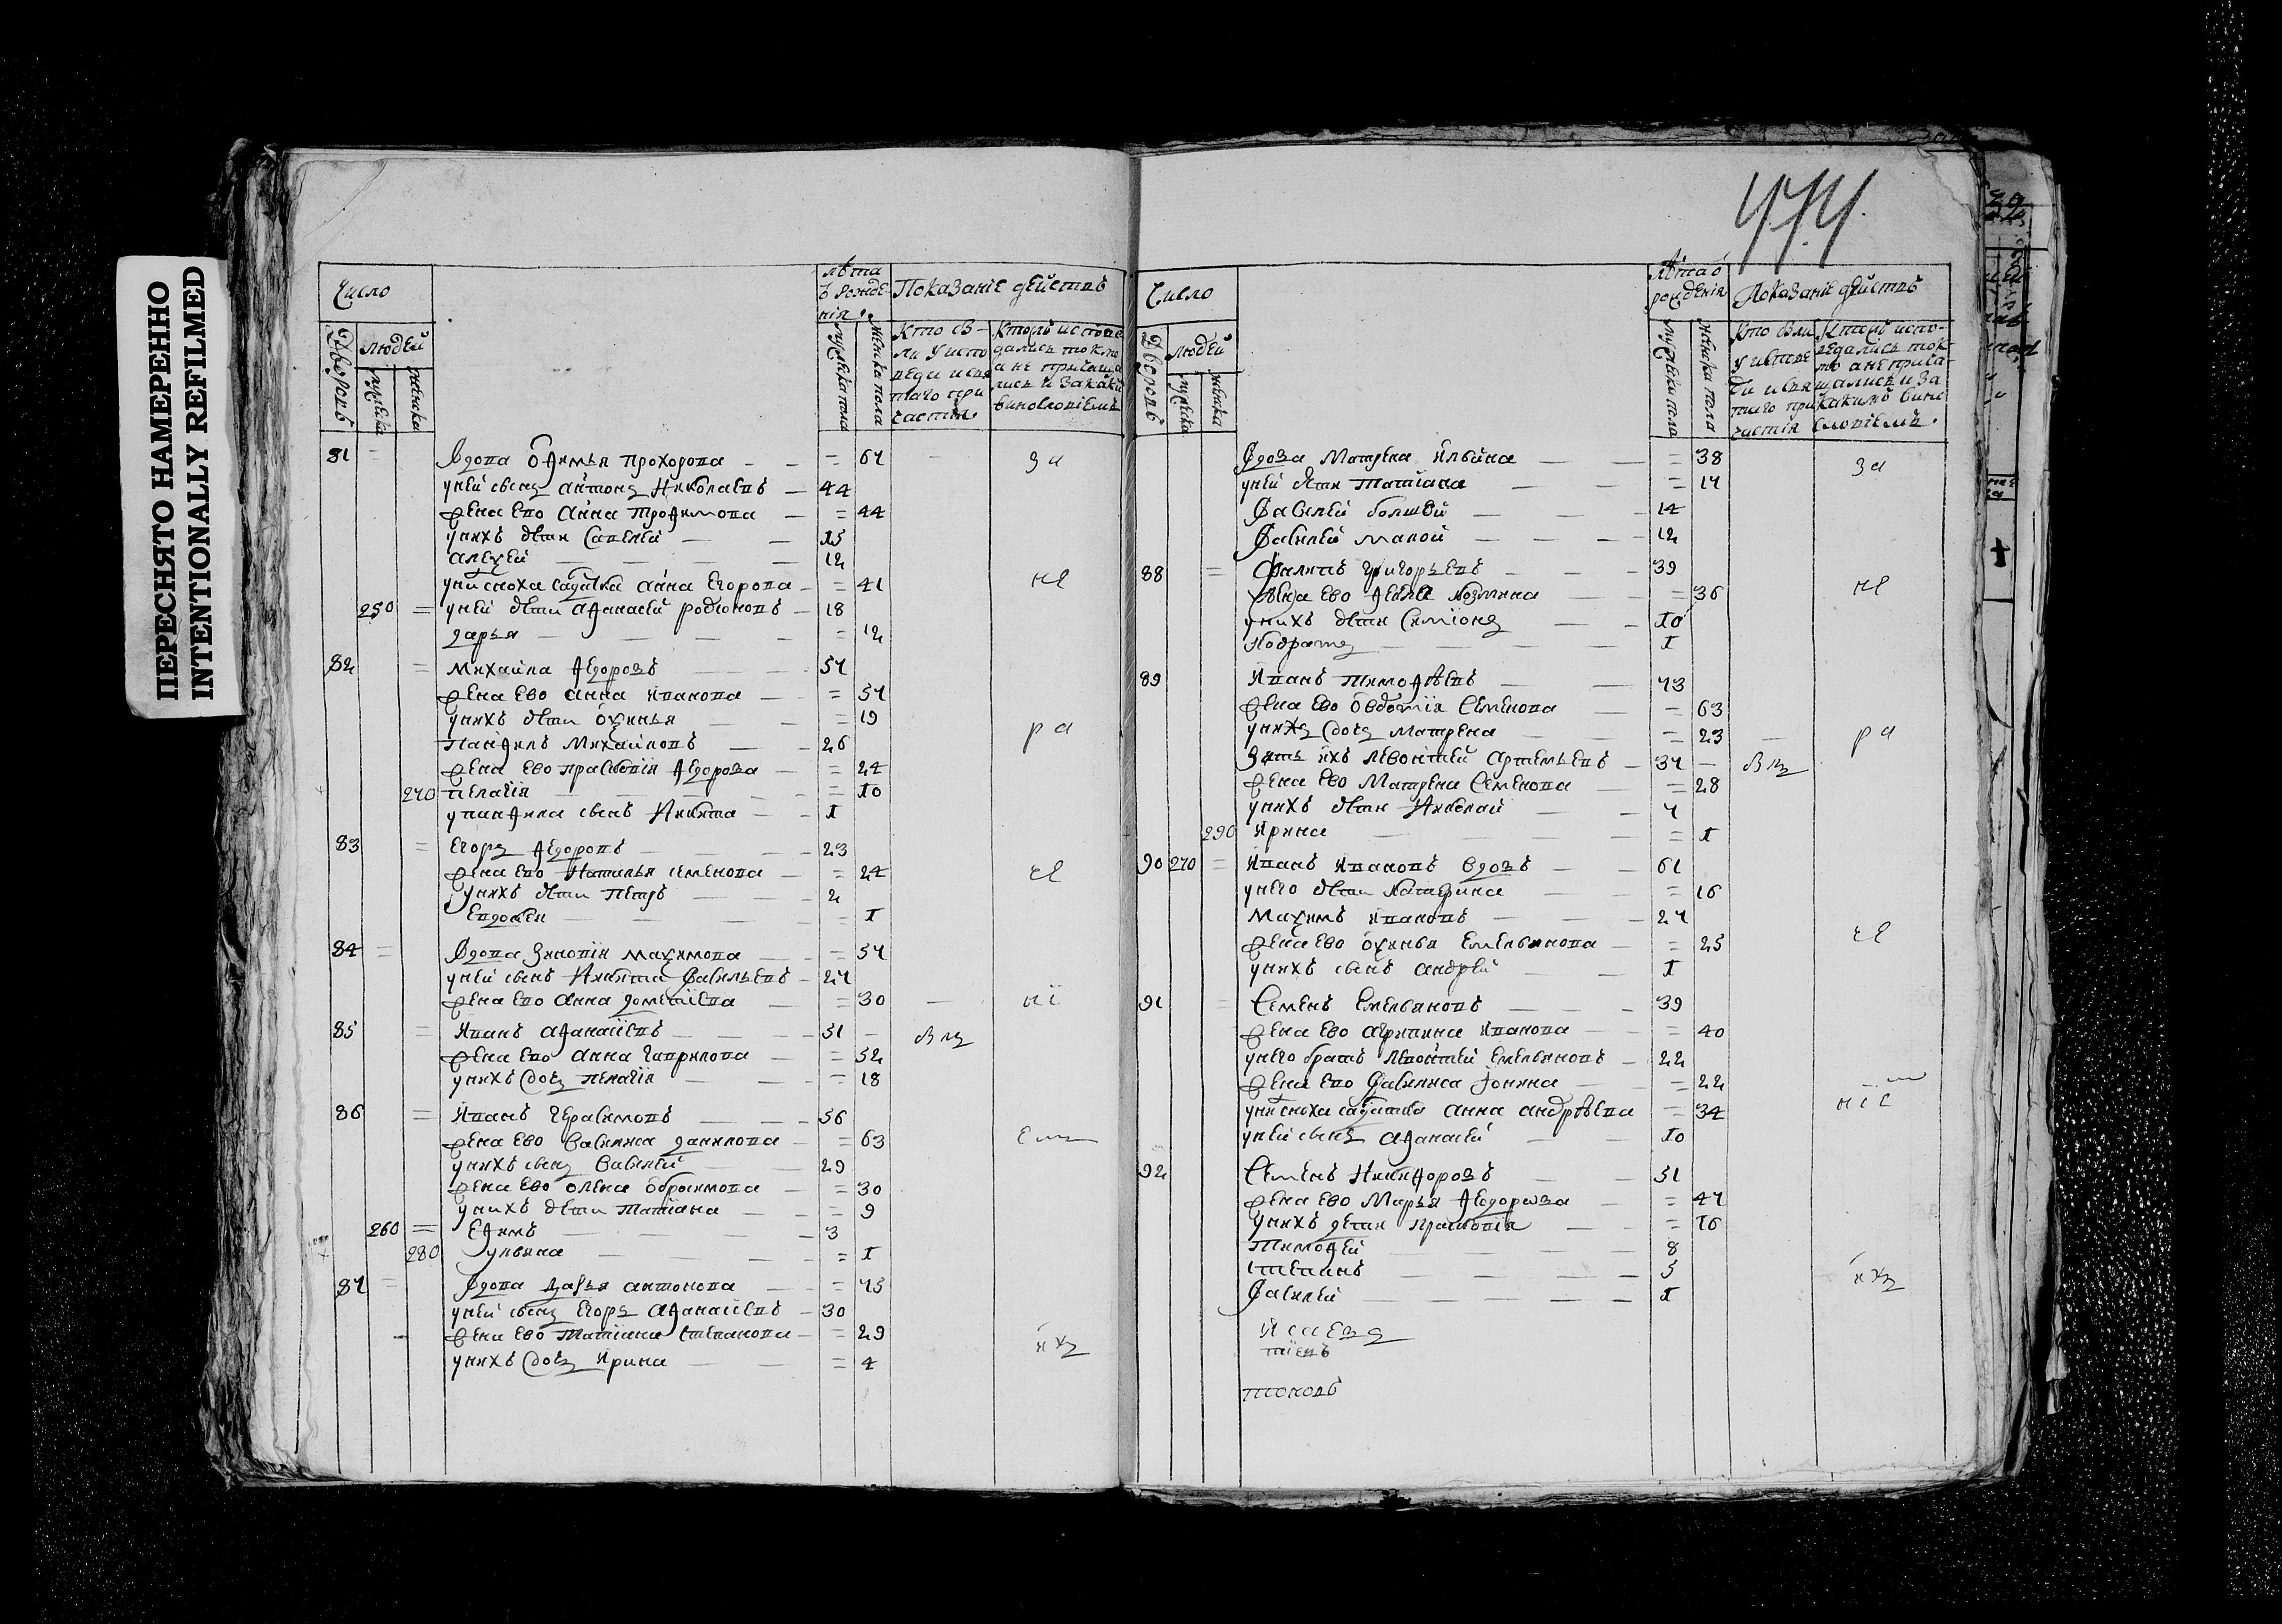 ПЕРЕСНЯТО НАМЕРЕННО
INTENTIONALLY REFILMED
Число
лѣта
ѿ рожде
нія
Показаніе дѣйствъ
Дворовъ
людей
мужеска
женска
мужеска пола
женска пола
Кто бы-
ли у испо
веди и свя
таго при
частія
Кто жъ испове
дались токмо
а не прича
лись и за каким
винословіемъ
81 = Вдова Офимья Прохорова — — = 67 — за
у ней сынъ Антонъ Николаевъ — 44
жена ево Анна Трофимова — = 44
у нихъ дѣти Савелей — — 15
Алексей — — — — 12
у ни сноха салдатка Анна Егорова — = 41 не
250 = у ней дѣти Афанасей Родіоновъ — 18
Дарья — — — — = 12
82 = Михаила Федоровъ — — 57
жена ево Анна Иванова — = 57
у нихъ дѣти Оксинья — — = 19
Панфилъ Михайловъ — — 26 ра
жена ево Прасковія Федорова — = 24
270 Пелагія — — — — = 10
у Панфила сынъ Никита — — 1
83 = Егоръ Федоровъ — — — 23
жена ево Наталья Семенова — = 24 че
у нихъ дѣти Петръ — — — 2
Евдокея — — — — = 1
84 = Вдова Зиновія Максимова — — = 57
у ней сынъ Никита Васильевъ — 27
жена ево Анна Дометіева — = 30 — ні
85 = Иванъ Афанасіевъ — — — 51 — Влц
жена ево Анна Гаврилова — = 52
у нихъ дочь Пелагія — — — = 18
86 = Иванъ Герасимовъ — — — 56
жена ево Василиса Данилова — = 63 ем
у нихъ сынъ Василей — — 29
жена ево Олена Обраимова — = 30
у нихъ дѣти Татіана — — = 9
260 = Ефимъ — — — — 3
280 Ульяна — — — — = 1
87 = Вдова Дарья Антонова — — = 75
у ней сынъ Егоръ Афанасіевъ — 30
жена ево Татіана Степанова — = 29
у нихъ дочь Ирина — — = 4 ихъ
Число
лѣта ѿ
рожденія
Показаніе дѣйствъ
Дворовъ
людей
мужеска
женска
мужеска пола
женска пола
Кто были
у испове
ди и свя
таго при
частія
Кто жъ испо-
ведались ток-
мо а не прича-
щались и за
какимъ вино
словіемъ
Вдова Матрена Ильина — — = 38 за
у ней дѣти Татіана — — = 17
Василей большой — — — 14
Василей малой — — — 12
88 = Филипъ Григорьевъ — — — 39
жена ево Козмина — — = 36 не
у нихъ дѣти Симіонъ — — 10
Кодратъ — — — — 1
89 Иванъ Тимофѣевъ — — 73
жена ево Овдотія Семенова — = 63
у нихъ дочь Матрена — — = 23 — ра
Зять ихъ Левонтей Артемьевъ — 37 — Влц
жена ево Матрена Семенова — = 28
у нихъ дѣти Николай — — 7
290 Ирина — — — — = 1
90 270 = Иванъ Ивановъ вдовъ — — 61
у него дѣти Катерина — — = 16
Максимъ Ивановъ — — — 27
жена ево Оксинья Емельянова — = 25 че
у нихъ сынъ Андрей — — 1
91 = Семенъ Емельяновъ — — — 39
жена ево Агрипина Иванова — = 40
у него братъ Левонтей Емельяновъ — 22
жена ево Василиса Іонина — — = 22
у ни сноха салдатка Анна Андрѣева = 34 ніе
у ней сынъ Афанасей — — 10
92 Семенъ Никифоровъ — — 51
жена ево Марья Федорова — = 47
у нихъ дѣти Прасковія — — = 16
Тимофей — — — — 8
Степанъ — — — — 5 ихъ
Василей — — — — 1
Исаева
тіевъ
тоновъ